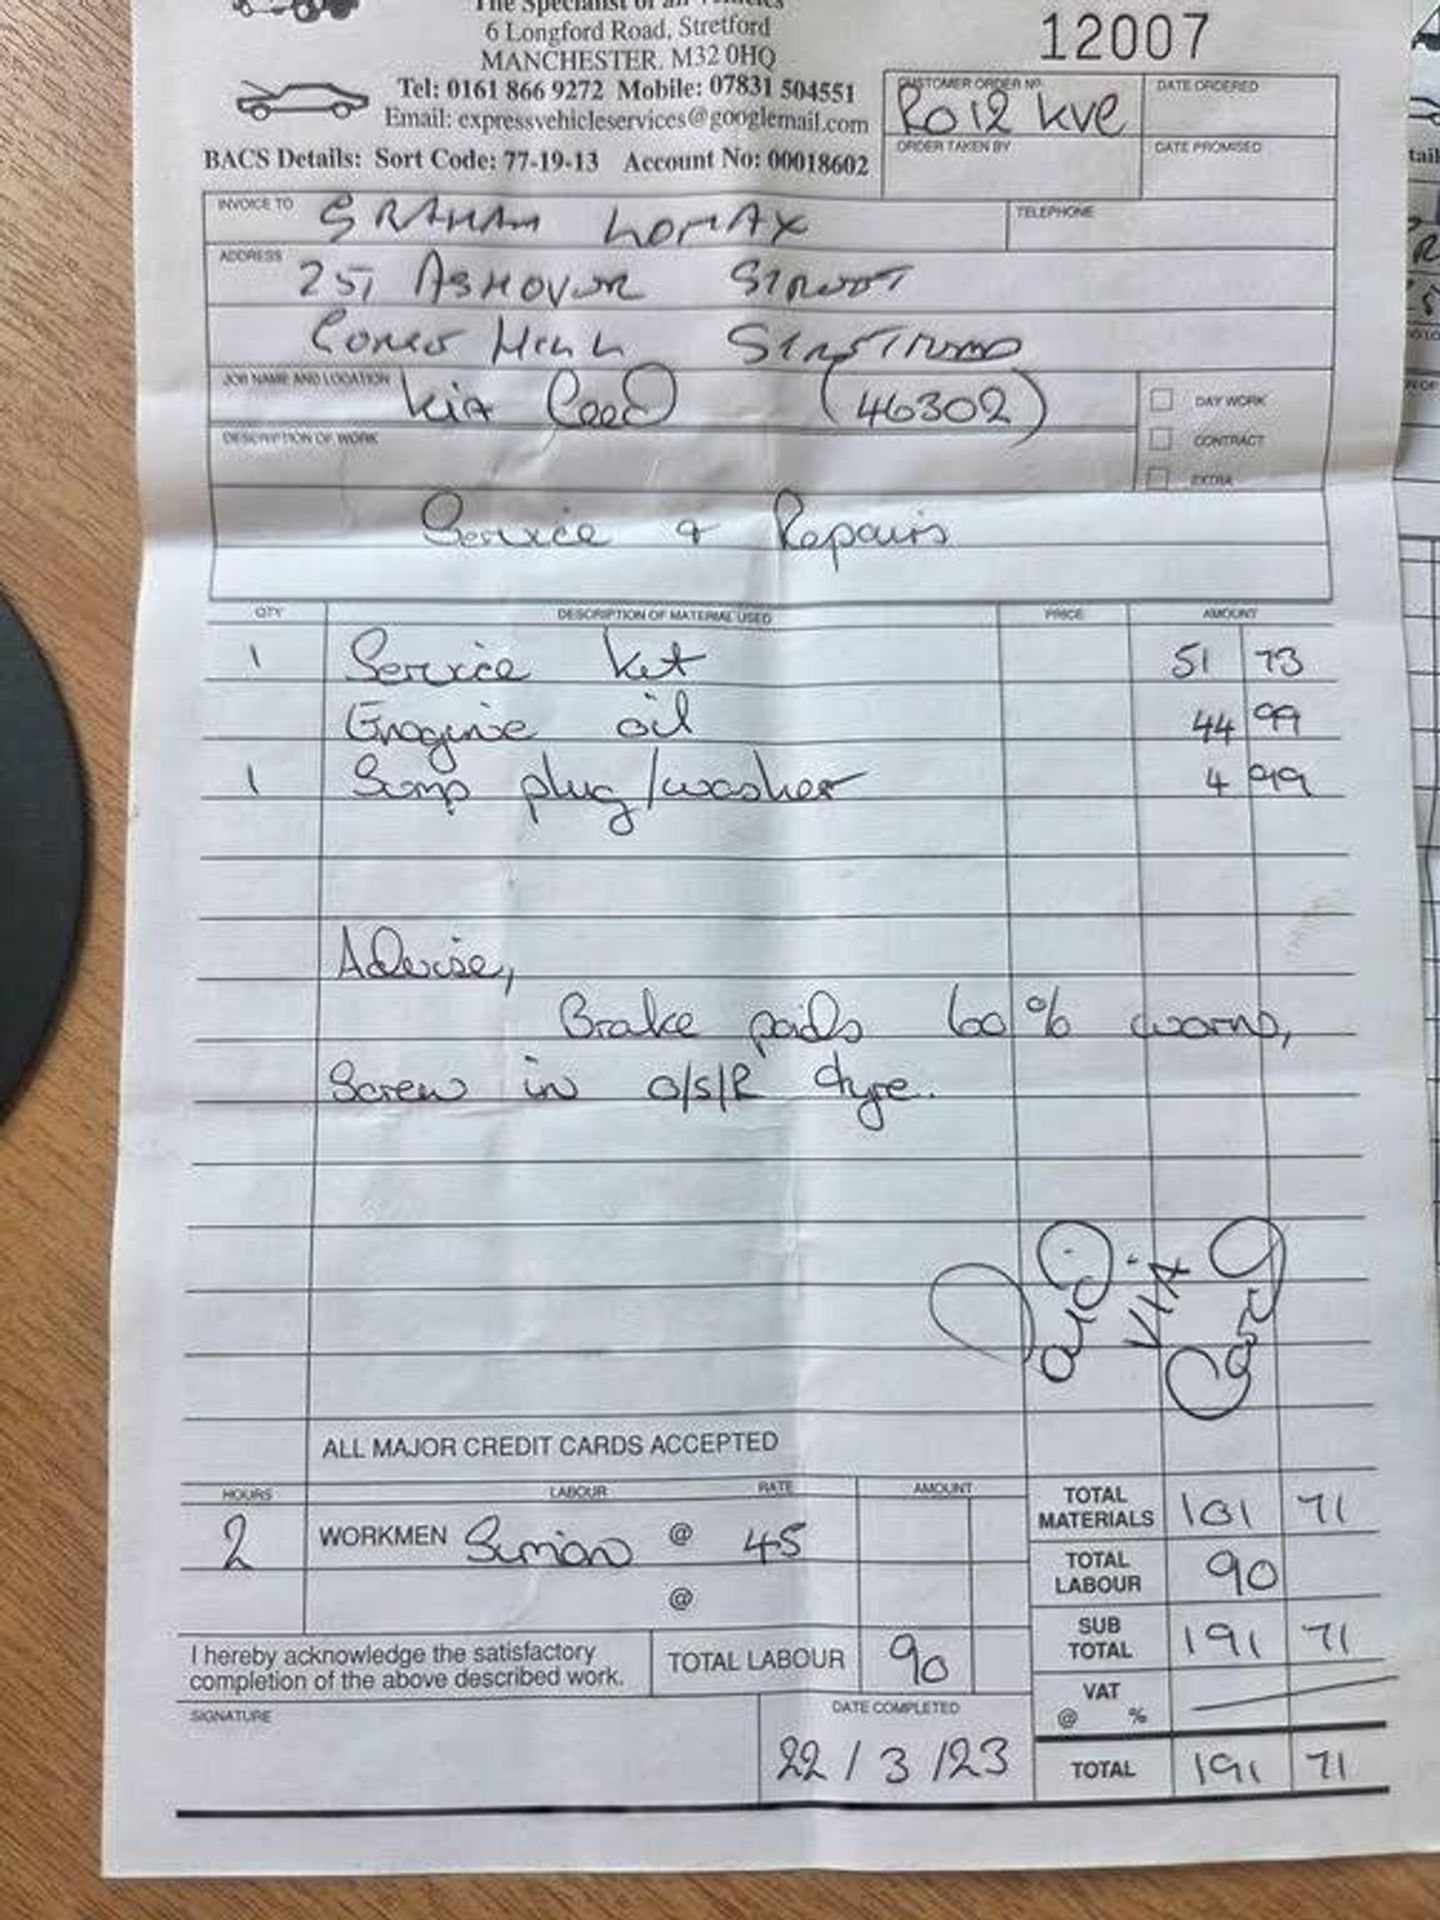 The Specialist of all Vehicles
6 Longford Road, Stretford
MANCHESTER. M32 0HQ
Tel: 0161 866 9272 Mobile: 07831 504551
Email: expressvehicleservices@googlemail.com
BACS Details: Sort Code: 77-19-13 Account No: 00018602
12007
CUSTOMER ORDER No. DATE ORDERED
RO12 KVE
ORDER TAKEN BY DATE PROMISED
INVOICE TO GRAHAM LOMAX TELEPHONE
ADDRESS 251 ASHOVER STREET
HILL
JOB NAME AND LOCATION Kia Ceed (46302) DAY WORK
DESCRIPTION OF WORK CONTRACT
EXTRA
Service & Repairs
QTY DESCRIPTION OF MATERIAL USED PRICE AMOUNT
1 Service kit 51 73
Engine oil 44 99
1 Sump plug/washer 4 99
Advise,
Brake pads 60% worn,
Screw in O/S/R tyre.
Paid
VIA
Card
ALL MAJOR CREDIT CARDS ACCEPTED
HOURS LABOUR RATE AMOUNT
2 WORKMEN Simon @ 45
@
TOTAL MATERIALS 101 71
TOTAL LABOUR 90
SUB TOTAL 191 71
VAT @ %
TOTAL 191 71
I hereby acknowledge the satisfactory
completion of the above described work.
TOTAL LABOUR 90
SIGNATURE
DATE COMPLETED
22/3/23